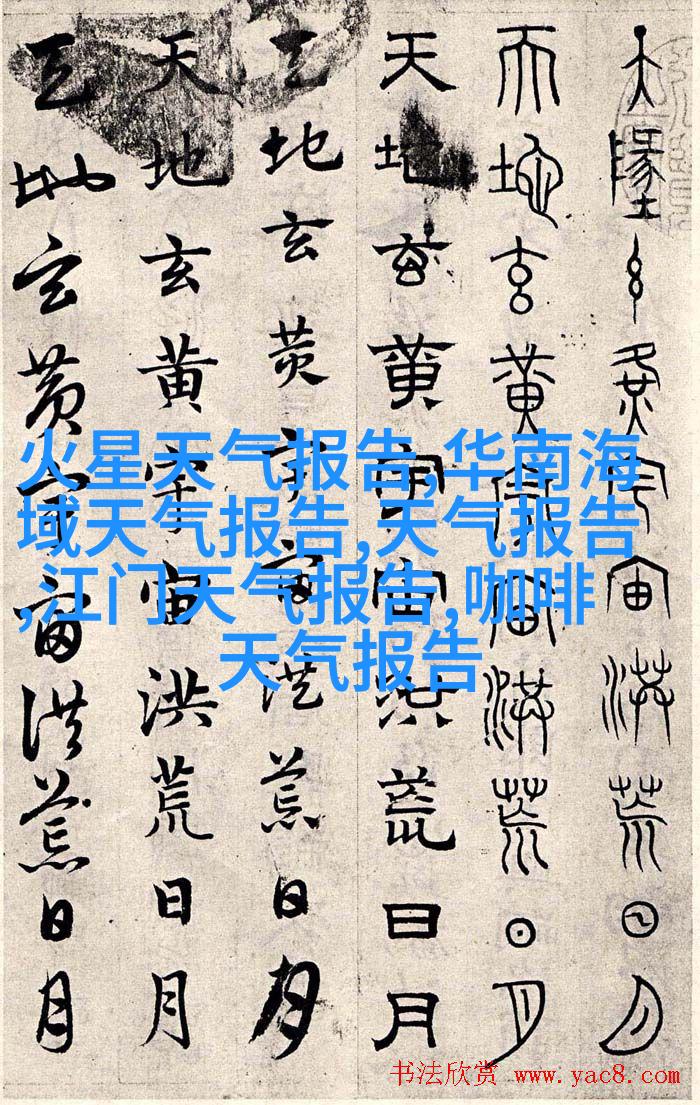 天地玄黄宇宙洪荒日月
天地玄黄宇宙洪荒日月
天地玄黄宇宙洪荒日月
天地玄黄宇宙洪荒日月
天地玄黄宇宙洪荒日月
天地玄黄宇宙洪荒日月
火星天气报告,华南海
域天气报告,天气报告
,江门天气报告,咖啡
天气报告
书法欣赏 www.yac8.com